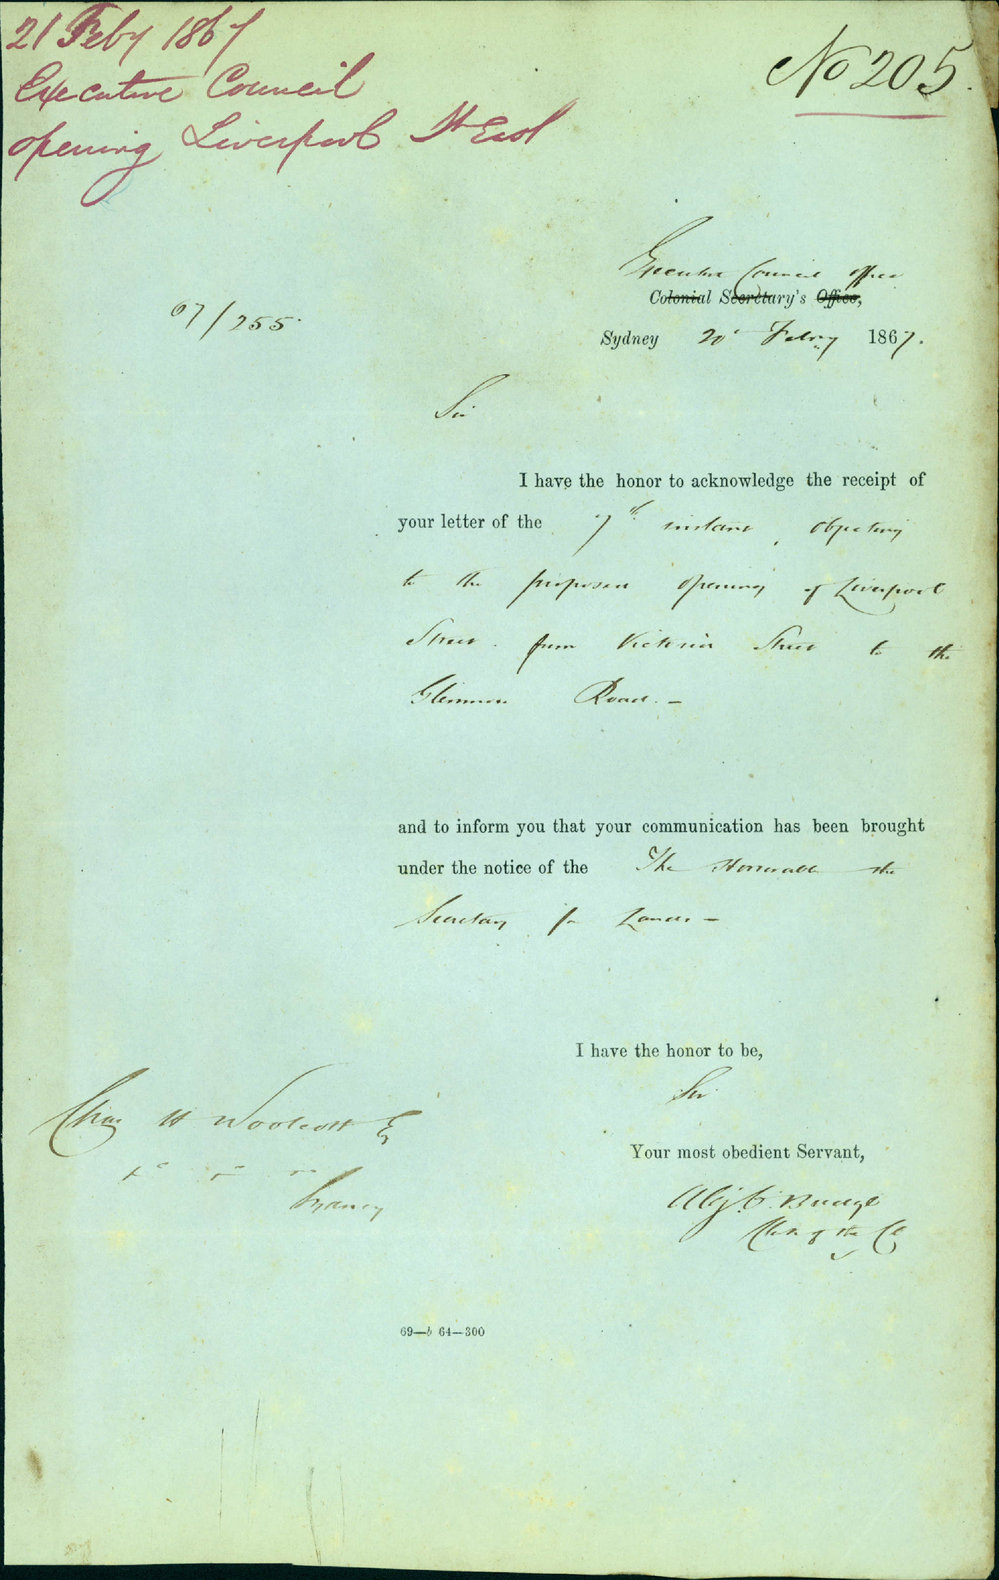 21 Feby 1867
Executive Council
opening Liverpool St East
No 205.
Executive Council Office
Colonial Secretary's Office,
67/255.
Sydney 20th Febry 1867.
Sir
I have the honor to acknowledge the receipt of
your letter of the 7th instant, objecting
to the proposed opening of Liverpool
Street from Victoria Street to the
Glenmore Road. —
and to inform you that your communication has been brought
under the notice of the The Honorable the
Secretary for Lands —
I have the honor to be,
Sir
Your most obedient Servant,
Chas H Woolcott Esq
Sydney
Alex C. Budge
Clerk of the C
69—b 64—300